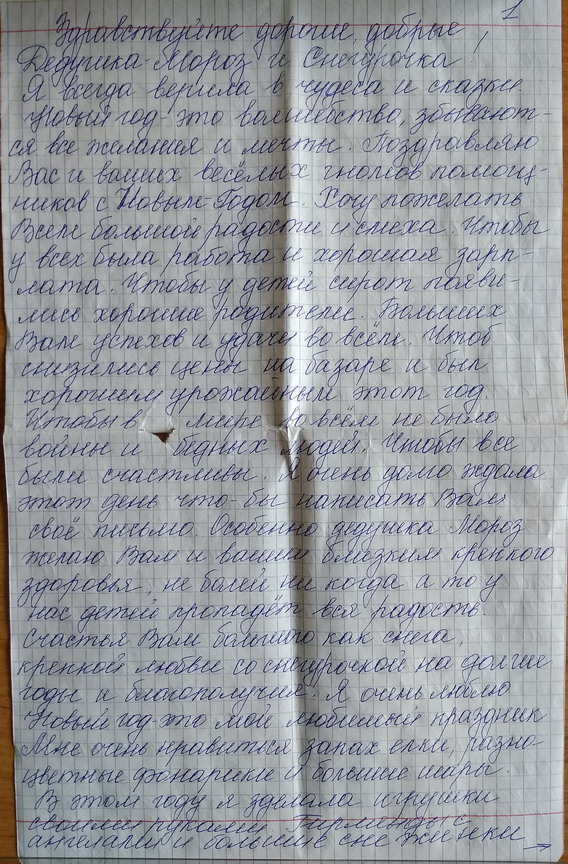 1
Здравствуйте дорогие, добрые
Дедушка-Мороз и Снегурочка!
Я всегда верила в чудеса и сказки.
Новый год-это волшебство, збывают-
ся все желания и мечты. Поздравляю
Вас и ваших весёлых гномов помощ-
ников с Новым-Годом. Хочу пожелать
Всем большой радости и смеха. Чтобы
у всех была работа и хорошая зарп-
лата. Чтобы у детей сирот появи-
лись хорошие родители. Больших
Вам успехов и удачи во всём. Чтоб
снизились цены на базаре и был
хорошим урожайным этот год.
Чтобы в мире во всём не было
войны и бедных людей. Чтобы все
были счастливы. Я очень долго ждала
этот день что-бы написать Вам
своё письмо. Особенно дедушка Мороз
желаю Вам и вашим близким крепкого
здоровья, не болей ни когда а то у
нас детей пропадёт вся радость.
Счастья Вам большого как снега,
крепкой любви со снегурочкой на долгие
годы и благополучия. Я очень люблю
Новый год-это мой любимый праздник
Мне очень нравиться запах елки, разно-
цветные фонарики и большие шары.
В этом году я зделала игрушки
своими руками. Гирлянды с
ангелами и большие снежинки →